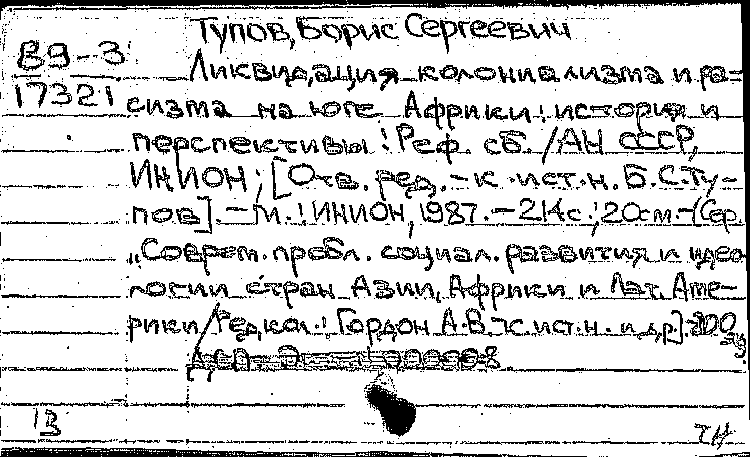 Тупов, Борис Сергеевич
В9-3
17321
Ликвидация колониализма и ра-
сизма на юге Африки: история и
перспективы: Реф. сб. /АН СССР,
ИНИОН; [Отв. ред. - к. ист. н. Б. С. Ту-
пов]. - М.: ИНИОН, 1987. - 214 с.; 20 см. - (Сер.
„Соврем. пробл. социал. развития и идео
логии стран Азии, Африки и Лат. Аме-
рики / Редкол.: Гордон А. В. к. ист. н. и др.]
13